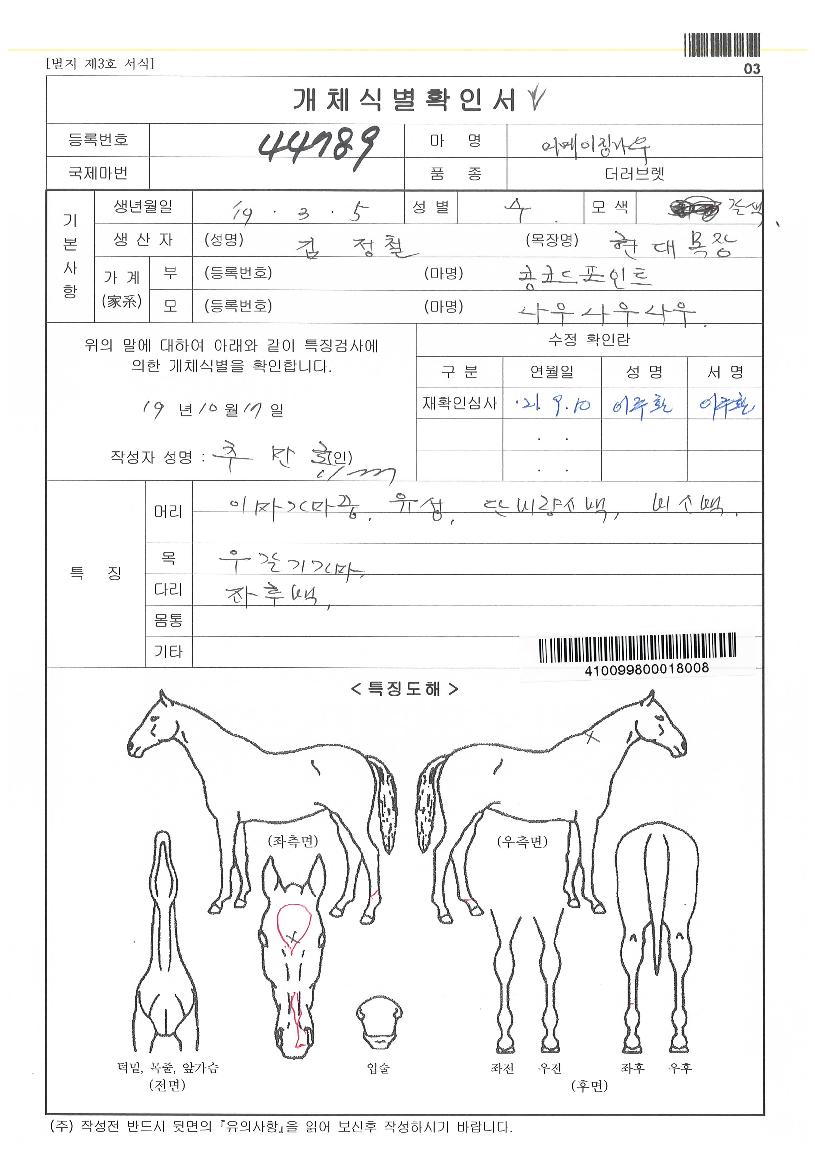 [별지 제3호 서식]
03
개체식별확인서
등록번호 44789 마 명 어메이징나우
국제마번 품 종 더러브렛
기본사항
생년월일 19 . 3 . 5 성별 수 모색 갈색
생산자 (성명) 김정철 (목장명) 현대목장
가계(家系) 부 (등록번호) (마명) 콩코드포인트
모 (등록번호) (마명) 나우나우나우
위의 말에 대하여 아래와 같이 특징검사에
의한 개체식별을 확인합니다.
19 년 10 월 17 일
작성자 성명 : (인)
수정 확인란
구 분 연월일 성 명 서 명
재확인심사 '21. 9. 10
. .
. .
특 징
머리 이마가마중, 유성, 단비량소백, 비소백.
목 우갈기가마,
다리 좌후백,
몸통
기타
410099800018008
< 특징도해 >
(좌측면) (우측면)
턱밑, 목줄, 앞가슴 입술 좌전 우전 좌후 우후
(전면) (후면)
(주) 작성전 반드시 뒷면의 『유의사항』을 읽어 보신후 작성하시기 바랍니다.